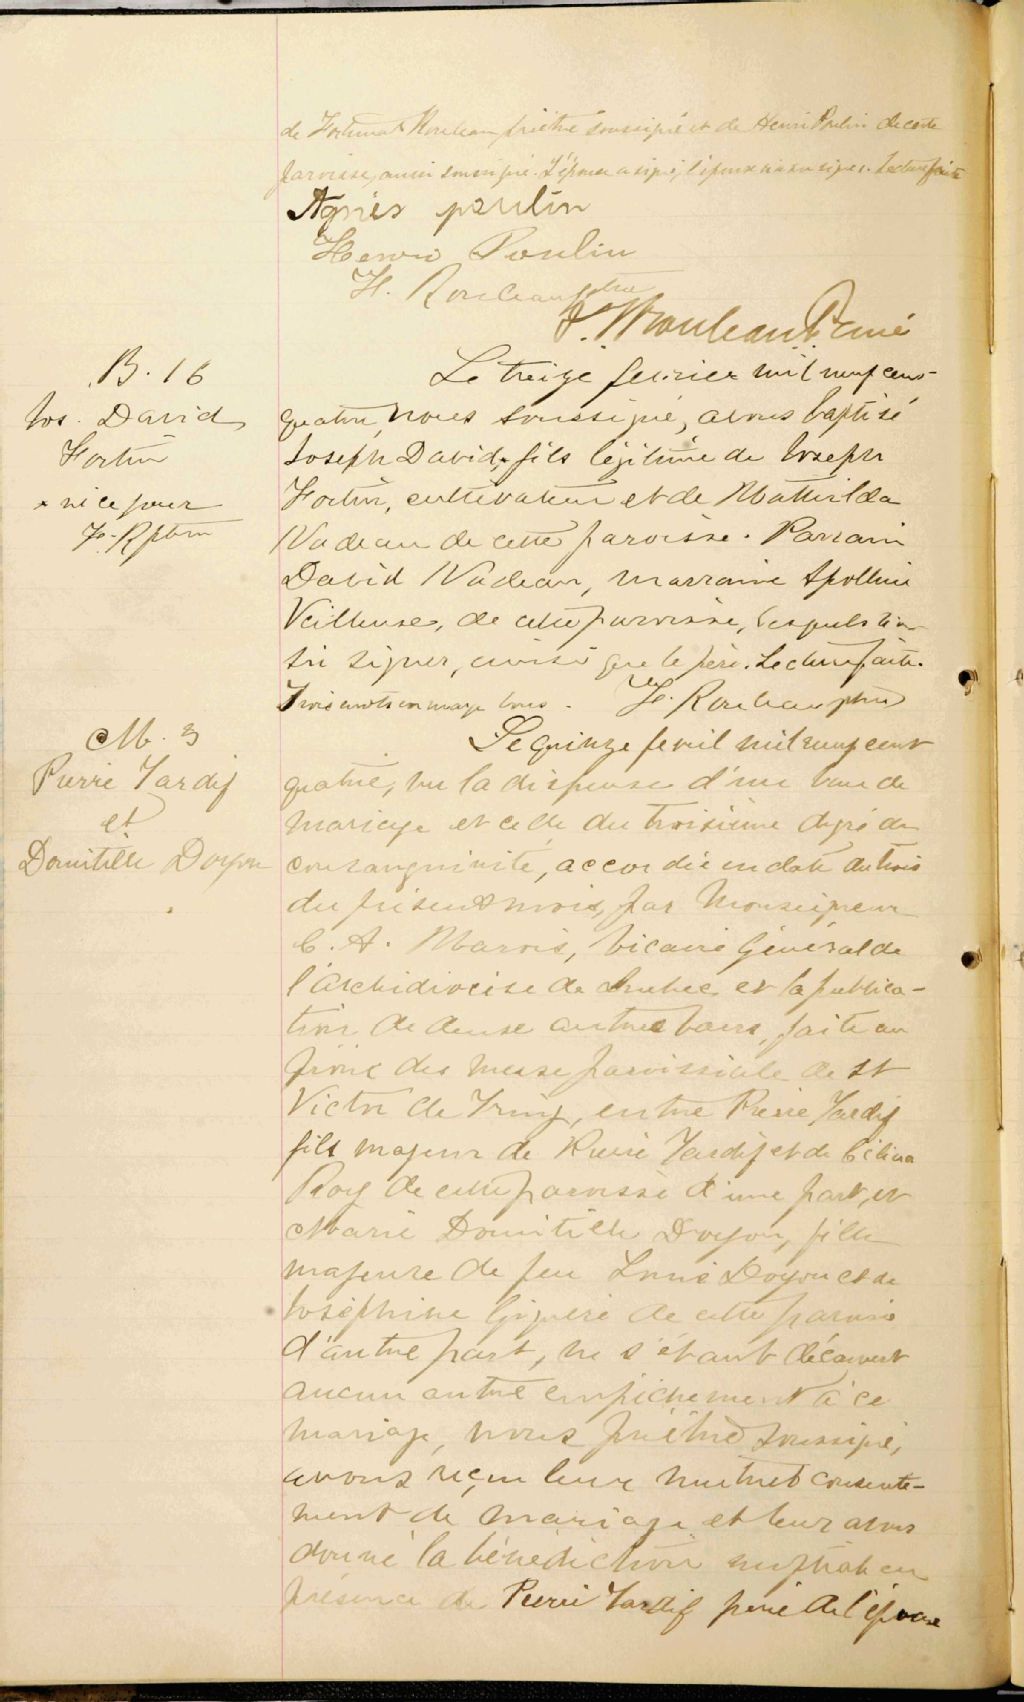 de Fortunat Rouleau prêtre soussigné et de Henri Poulin de cette
paroisse, aussi soussigné. L'épouse a signé, l'époux n'a su signer. Lecture faite
Agnès poulin
Henri Poulin
H. Rouleau ptre
Rouleau Ptre Curé
B. 16
Jos. David
Fortin
x né ce jour
F. R ptre
Le treize février mil neuf cent
quatre, nous soussigné, avons baptisé
Joseph David, x fils légitime de Joseph
Fortin, cultivateur et de Mathilda
Nadeau de cette paroisse. Parrain
David Nadeau, marraine Apolline
Veilleuse, de cette paroisse, lesquels n'on
su signer, ainsi que le père. Lecture faite.
Trois mots en marge bons. F. Rouleau ptre
M. 3
Pierre Tardif
et
Domitille Doyon
Le quinze fevril mil neuf cent
quatre, vu la dispense d'un banc de
mariage et celle du troisième degré de
consanguinité, accordée en date du trois
du présent mois, par Monseigneur
C. A. Marois, Vicaire Général de
l'Archidiocèse de Québec et la publica-
tion de deux autres bans, faite au
prône des messe paroissiale de St
Victor de Tring, entre Pierre Tardif
fils majeur de Pierre Tardif et de Célina
Roy de cette paroisse d'une part, et
Marie Domitille Doyon, fille
majeure de feu Louis Doyon et de
Joséphine Giguère de cette paroisse
d'autre part, ne s'étant découvert
aucun autre empêchement à ce
mariage, nous prêtre soussigné,
avons reçu leur mutuel consente-
ment de mariage et leur avons
donné la bénédiction nuptiale en
présence de Pierre Tardif père de l'époux